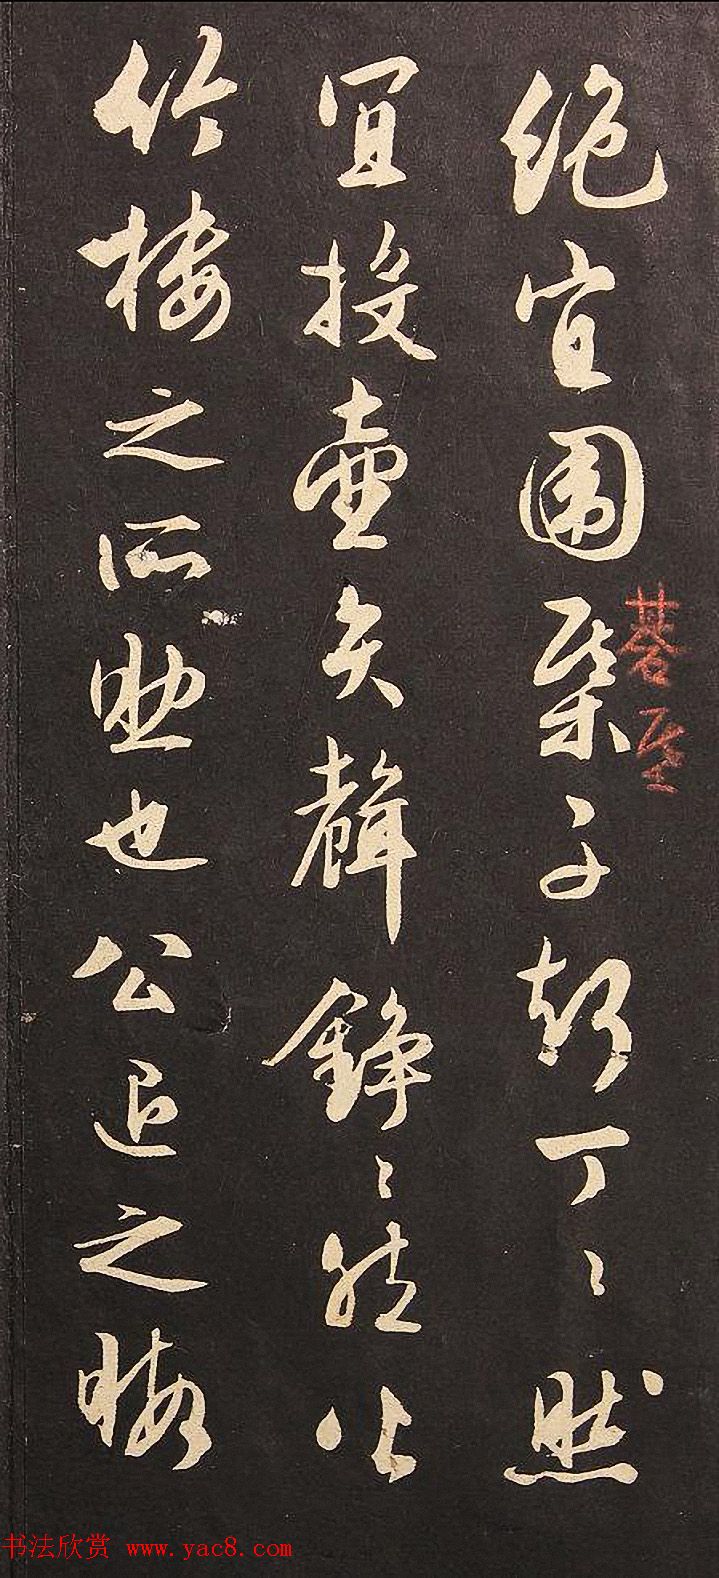 絶宜围棊子聲丁丶然
宜投壺矢聲錚丶然皆
竹樓之所助也公退之暇
书法欣赏 www.yac8.com